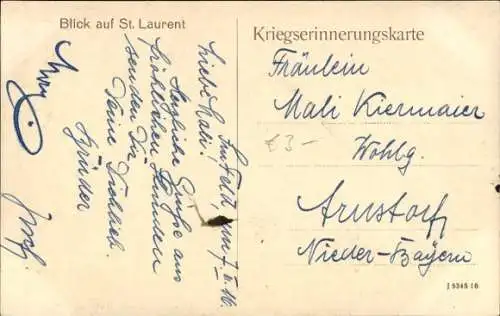 Blick auf St. Laurent
Kriegserinnerungskarte
Im Feld, 7. II. 16.
Liebe Mali!
Herzliche Grüße aus
fröhlichen Stunden
senden Dir
Deine
Fräulein
Mali Kiermaier
Wohlg.
Arnstorf
Nieder-Bayern
£3-
J 5345 16